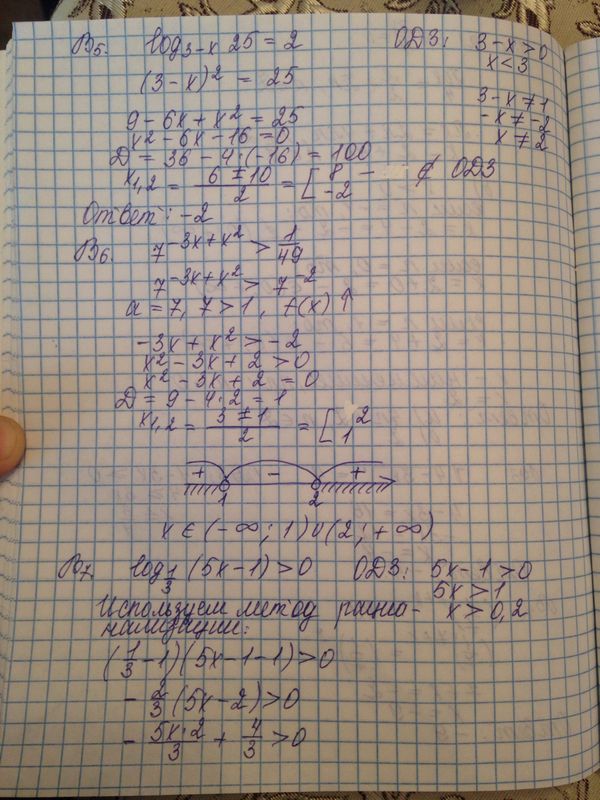 В5. log₃₋ₓ 25 = 2 ОДЗ: 3-x>0
x<3
(3-x)² = 25
3-x≠1
9-6x+x² = 25
-x≠-2
x²-6x-16=0
x≠2
D = 36-4·(-16) = 100
x₁,₂ = (6±10)/2 = [8 - ∉ ОДЗ
-2
Ответ: -2
В6. 7^(-3x+x²) > 1/49
7^(-3x+x²) > 7^(-2)
a=7, 7>1, f(x)↑
-3x+x²>-2
x²-3x+2>0
x²-3x+2=0
D=9-4·2=1
x₁,₂ = (3±1)/2 = [2
1
+ - +
1 2
x∈(-∞;1)∪(2;+∞)
В7. log_(1/3) (5x-1)>0 ОДЗ: 5x-1>0
5x>1
Используем метод рацио- x>0,2
нализации:
(1/3-1)(5x-1-1)>0
-2/3(5x-2)>0
-(5x·2)/3 + 4/3 >0